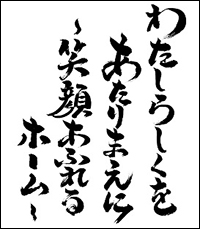 わたしらしくを
あたりまえに
~笑顔あふれる
ホーム~